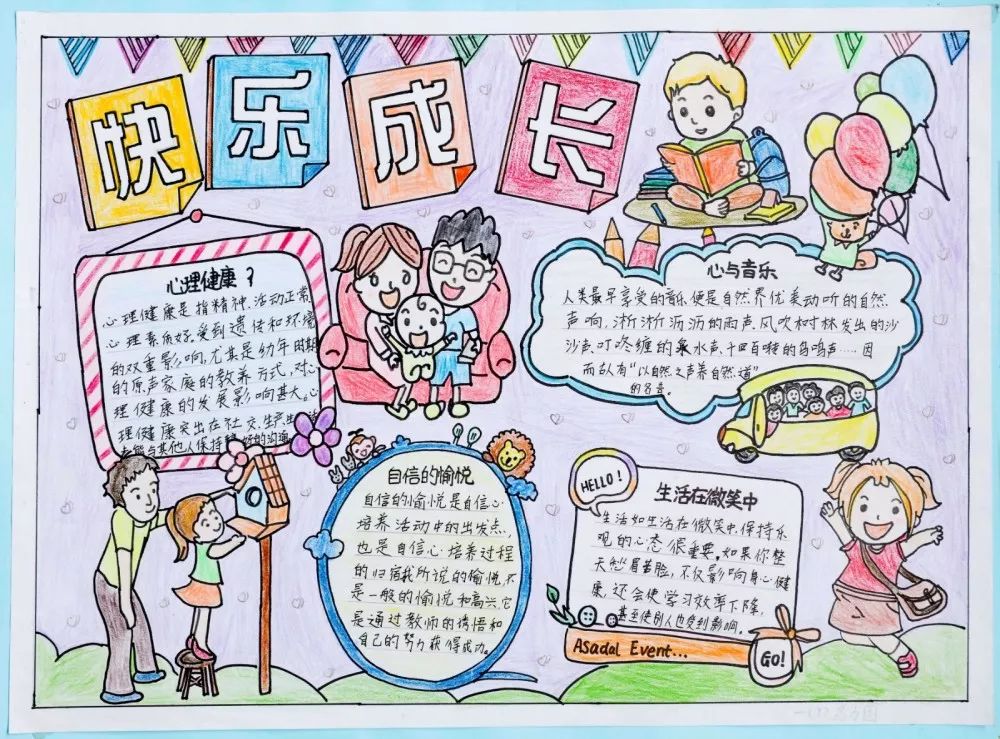 快乐成长
心理健康?
心理健康是指精神、活动正常、
心理素质好,受到遗传和环境
的双重影响,尤其是幼年时期
的原声家庭的教养方式,对心
理健康的发展影响甚大。心
理健康突出在社交、生产、生
能与其他人保持 好的沟通
心与音乐
人类最早享受的音乐便是自然界优美动听的自然
声响,淅淅沥沥的雨声、风吹树林发出的沙
沙声、叮咚缠的泉水声、千回百啭的鸟鸣声……因
而就有“以自然之声养自然之道”
的名言。
自信的愉悦
自信的愉悦是自信心
培养活动中的出发点,
也是自信心培养过程
的归宿我所说的愉悦,不
是一般的愉悦和高兴,它
是通过教师的 悟和
自己的努力获得成功。
HELLO!
生活在微笑中
生活如生活在微笑中,保持乐
观的心态很重要。如果你整
天愁眉苦脸,不仅影响身心健
康,还会使学习效率下降,
甚至使别人也受到影响。
Asadal Event...
GO!